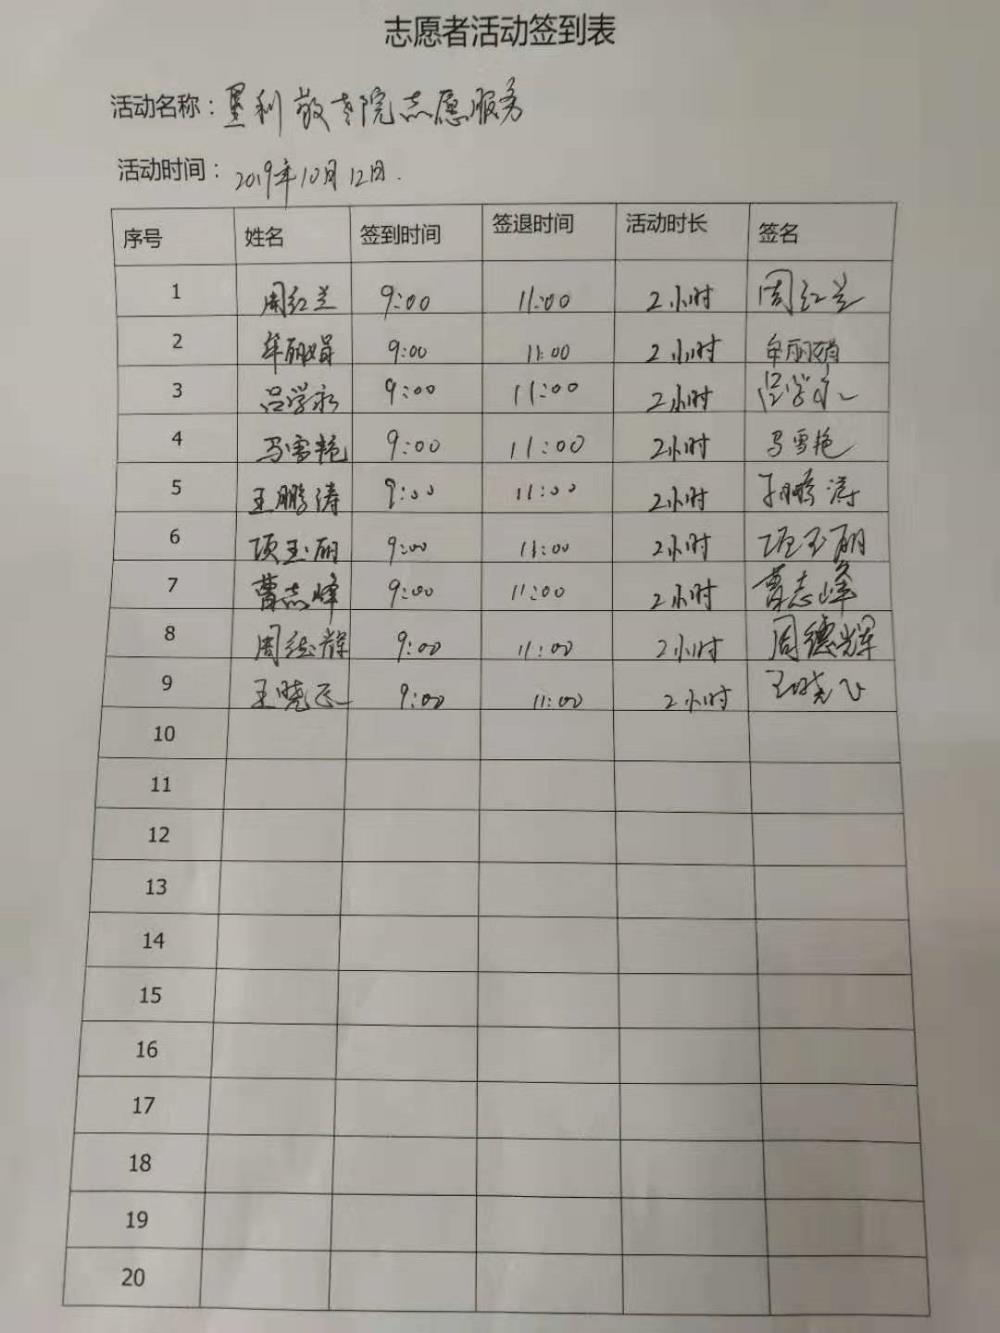 志愿者活动签到表
活动名称：垦利敬老院志愿服务
活动时间：2019年10月12日.
序号 姓名 签到时间 签退时间 活动时长 签名
1 周红兰 9:00 11:00 2小时 周红兰
2 牟丽娟 9:00 11:00 2小时 牟丽娟
3 吕学永 9:00 11:00 2小时 吕学永
4 马雪艳 9:00 11:00 2小时 马雪艳
5 王鹏涛 9:00 11:00 2小时 王鹏涛
6 项玉丽 9:00 11:00 2小时 项玉丽
7 曹志峰 9:00 11:00 2小时 曹志峰
8 周德辉 9:00 11:00 2小时 周德辉
9 王晓飞 9:00 11:00 2小时 王晓飞
10
11
12
13
14
15
16
17
18
19
20